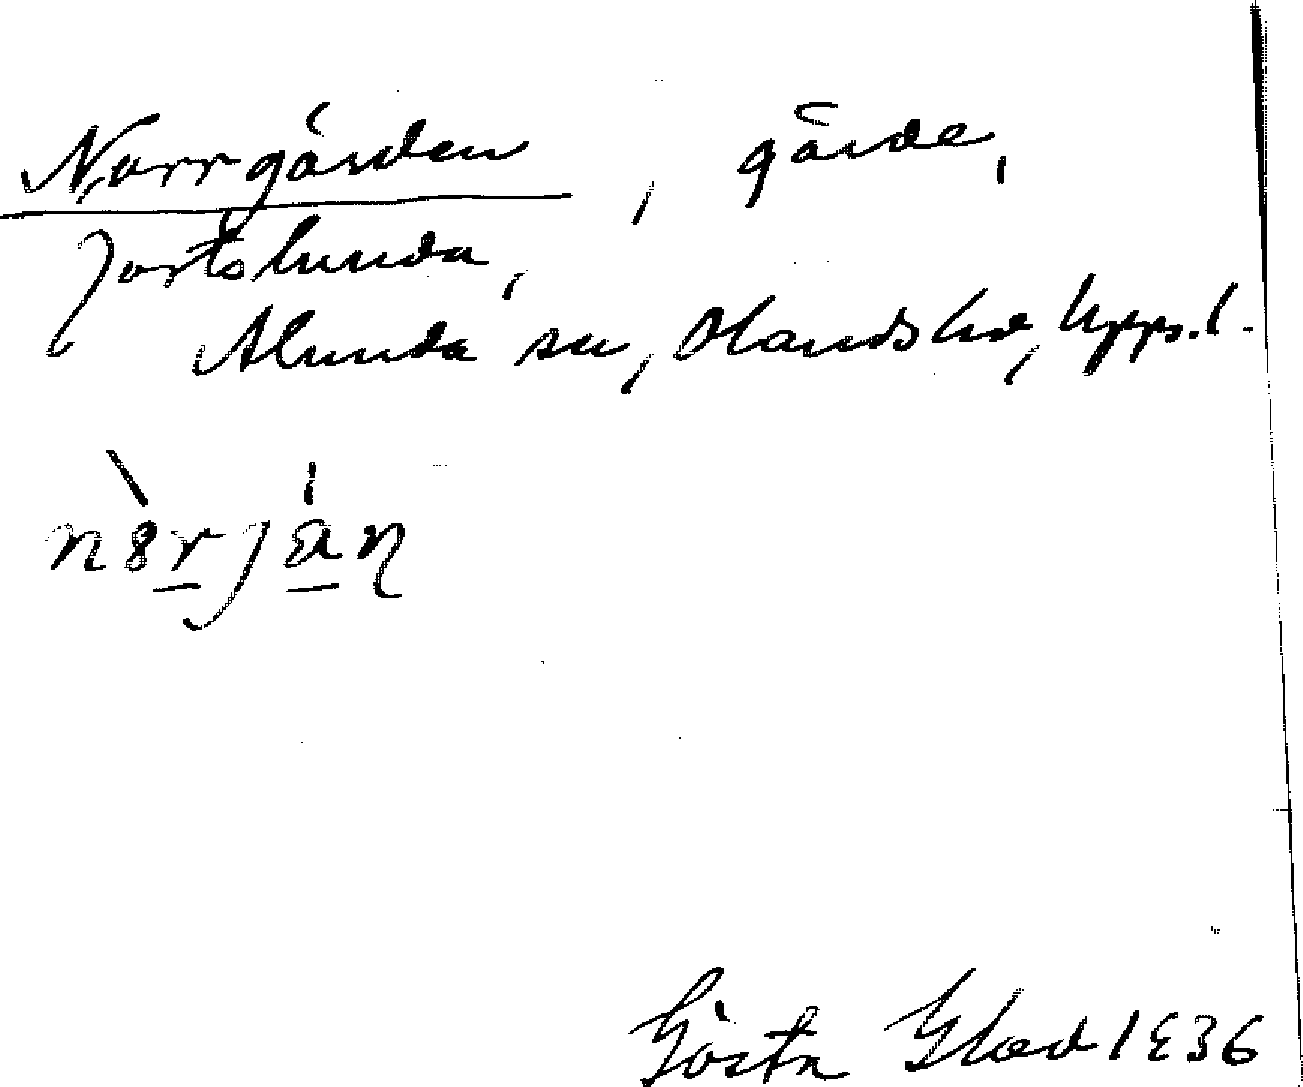 Norrgården, gärde,
Jortslunda,
Alunda sn, Olands hd, Upps. l.
Gösta Glad 1936